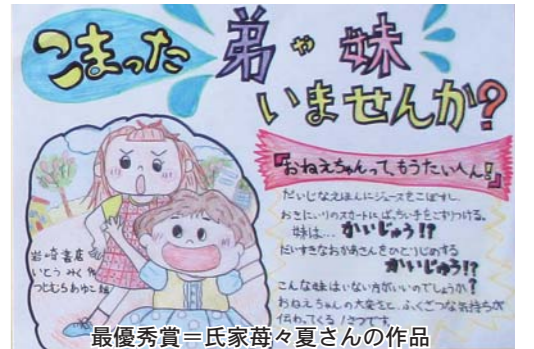 こまった
弟や妹
いませんか?
『おねえちゃんって、もうたいへん!』
だいじなえほんにジュースをこぼすし、
おきにいりのスカートに、ばっちい手をこすりつける。
妹は… かいじゅう!?
だいすきなおかあさんをひとりじめする
かいじゅう!?
こんな妹はいない方がいいのでしょうか?
おねえちゃんの大変さと、ふくざつな気持ちが
伝わってくる1さつです。
岩崎書店
いとうみく作
つじむらあゆこ絵
最優秀賞=氏家苺々夏さんの作品